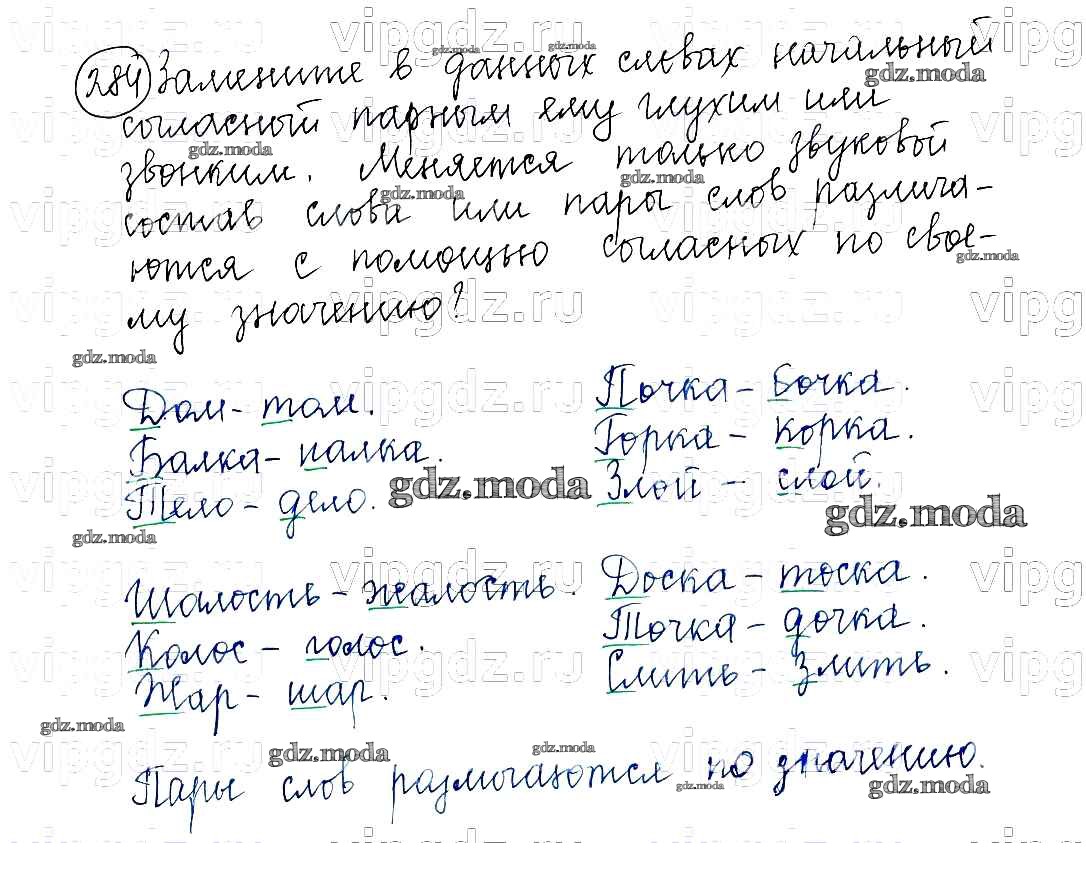 284 Замените в данных словах начальный
согласный парным ему глухим или
звонким. Меняется только звуковой
состав слова или пары слов различа-
ются с помощью согласных по свое-
му значению?
Дом - том. Почка - бочка.
Балка - палка. Горка - корка.
Тело - дело. Злой - слой.
Шалость - жалость. Доска - тоска.
Колос - голос. Точка - дочка.
Жар - шар. Слить - злить.
Пары слов различаются по значению.
vipgdz.ru
gdz.moda